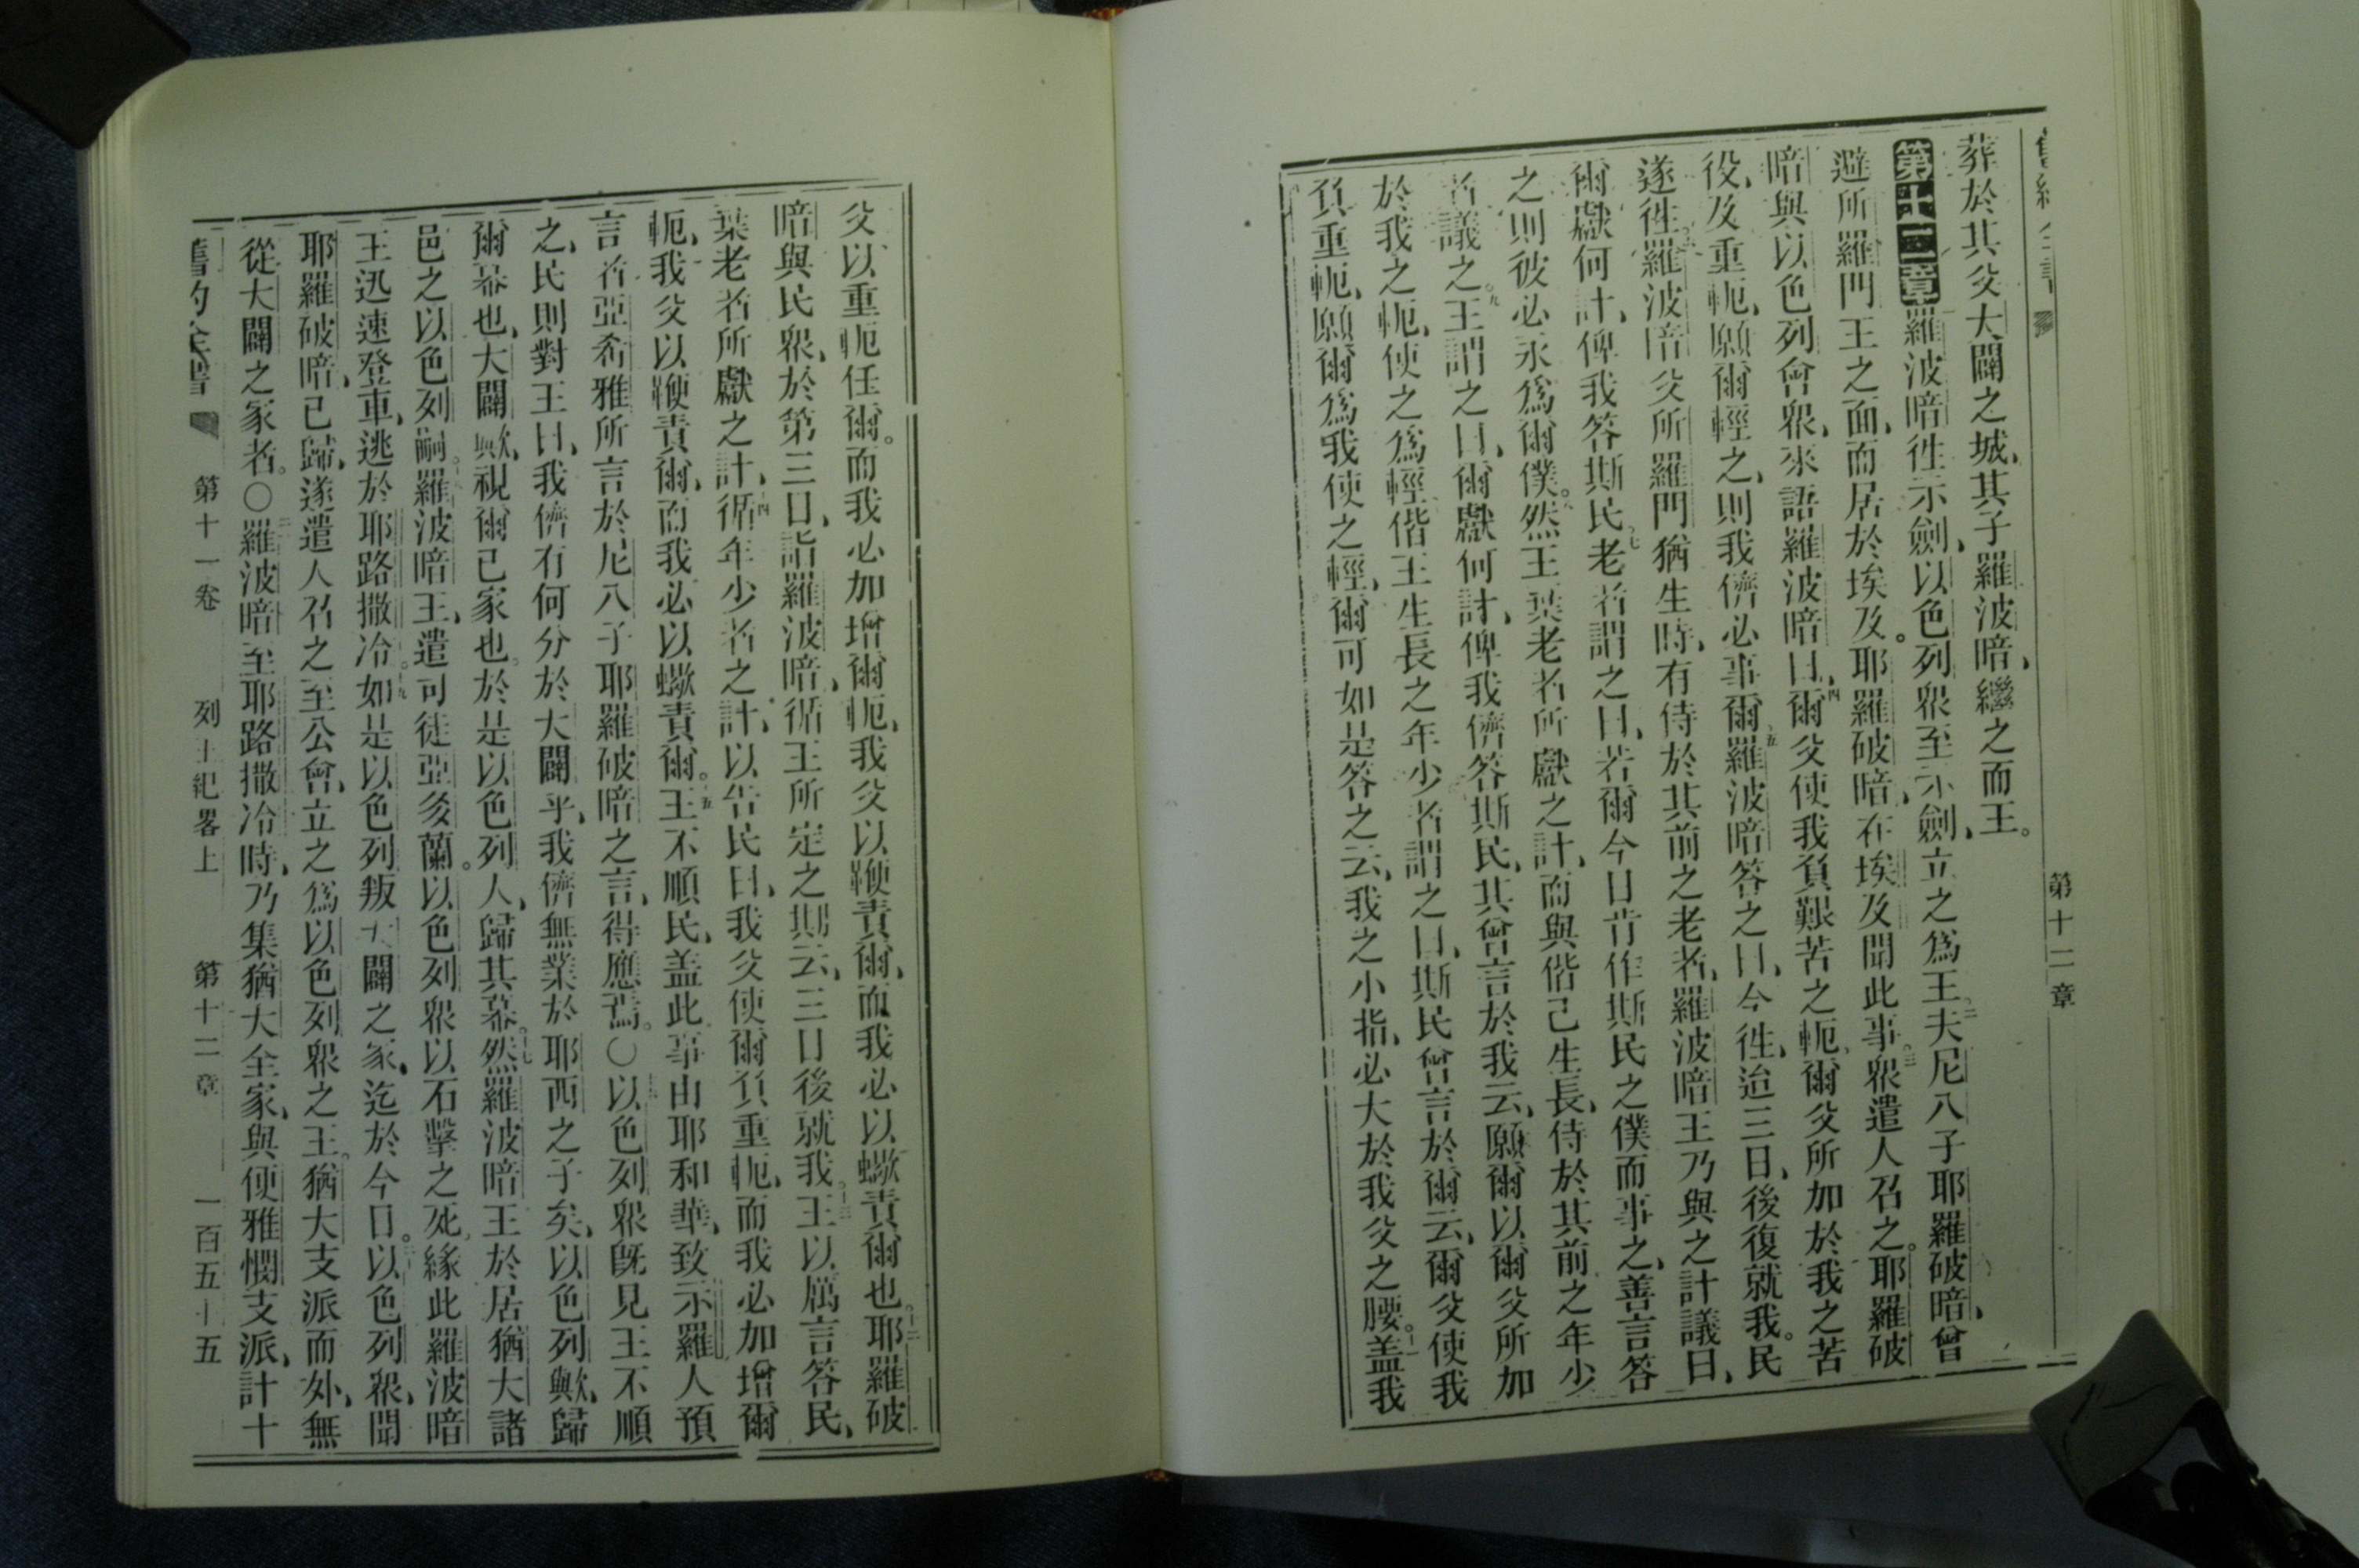 第十二章
葬於其父大闢之城、其子羅波暗、繼之而王。
第十二章羅波暗徃示劍、以色列眾至示劍、立之爲王。二夫尼八子耶羅破暗、曾
避所羅門王之面、而居於埃及。耶羅破暗、在埃及聞此事。三眾遣人召之。耶羅破
暗與以色列會眾、來語羅波暗曰、四爾父使我負艱苦之軛、爾父所加於我之苦
役、及重軛、願爾輕之、則我儕必事爾。五羅波暗答之曰、今徃、迨三日、後復就我。民
遂徃。六羅波暗父所羅門猶生時、有侍於其前之老者、羅波暗王乃與之計議曰、
爾獻何計、俾我答斯民。七老者謂之曰、若爾今日肯作斯民之僕而事之、善言答
之則彼必永爲爾僕。八然王棄老者所獻之計、而與偕己生長、侍於其前之年少
者議之。九王謂之曰、爾獻何計、俾我儕答斯民、其曾言於我云、願爾以爾父所加
於我之軛、使之爲輕。偕王生長之年少者謂之曰、斯民曾言於爾云、爾父使我
負重軛、願爾爲我使之輕、爾可如是答之云、我之小指、必大於我父之腰。十一蓋我
父以重軛任爾。而我必加增爾軛、我父以鞭責爾、而我必以蠍責爾也。十二耶羅破
暗與民眾、於第三日、詣羅波暗、循王所定之期云、三日後就我。十三王以厲言答民、
棄老者所獻之計、十四循年少者之計、以告民曰、我父使爾負重軛、而我必加增爾
軛、我父以鞭責爾、而我必以蠍責爾。十五王不順民、蓋此事由耶和華、致示羅人預
言者亞希雅所言於尼八子耶羅破暗之言、得應焉。〇以色列眾旣見王不順
之、民則對王曰、我儕有何分於大闢乎、我儕無業於耶西之子矣、以色列歟、歸
爾幕也、大闢歟、視爾己家也。於是以色列人、歸其幕。十七然羅波暗王於居猶大諸
邑之以色列嗣。羅波暗王、遣司徒亞多蘭。以色列眾以石擊之死、緣此羅波暗
王迅速登車、逃於耶路撒冷。十九如是以色列叛大闢之家、迄於今日。以色列眾、聞
耶羅破暗、已歸、遂遣人召之至公會、立之爲以色列眾之王。猶大支派而外、無
從大闢之家者。〇羅波暗至耶路撒冷時、乃集猶大全家、與便雅憫支派、計十
舊約全書 第十一卷 列王紀畧上 第十二章 一百五十五